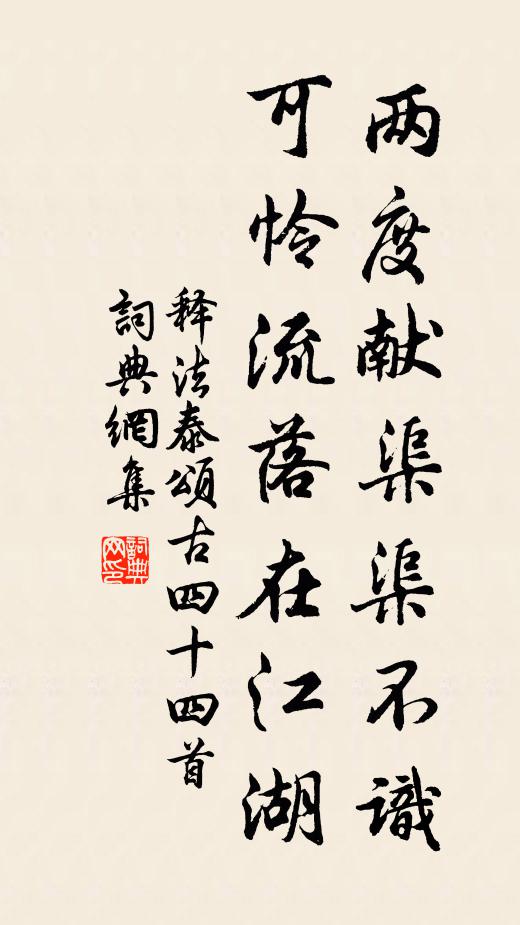 两度献渠渠不識
可怜流落在江湖
释法泰頌古四十四首
詞典網集
詞典网印